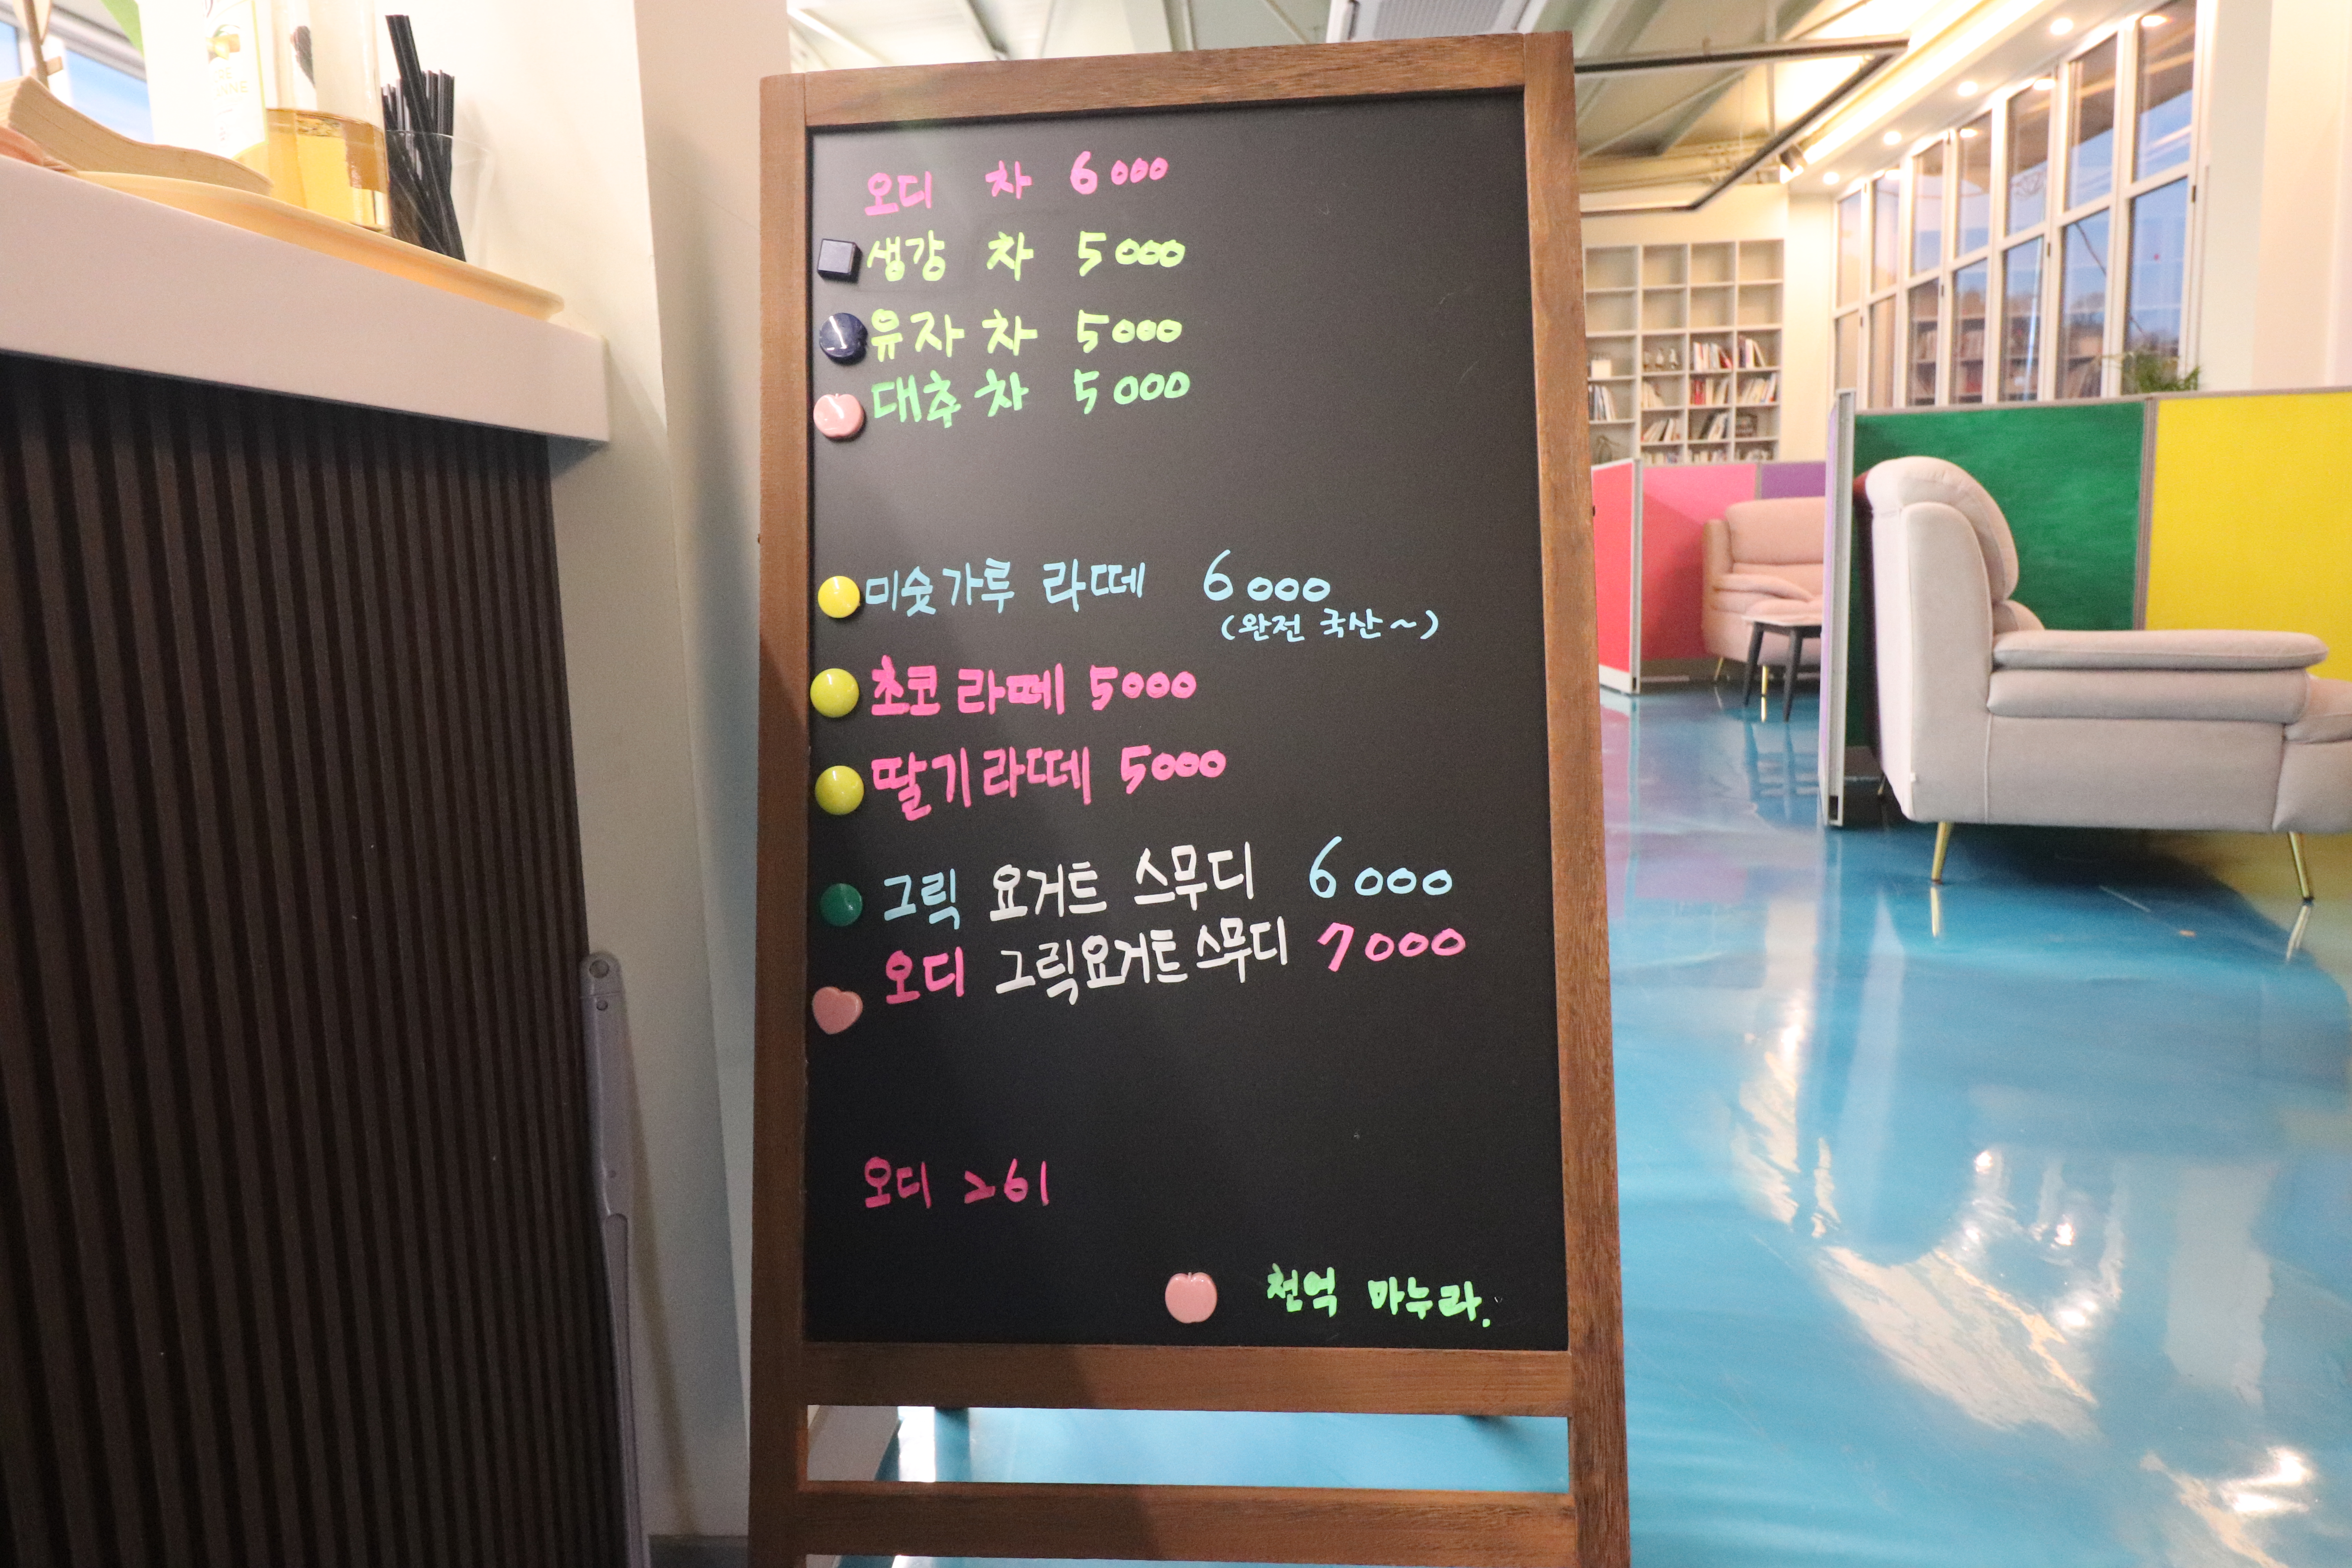 오디 차 6000
생강 차 5000
유자 차 5000
대추 차 5000
미숫가루 라떼 6000
(완전 국산~)
초코 라떼 5000
딸기 라떼 5000
그릭 요거트 스무디 6000
오디 그릭요거트 스무디 7000
오디
천억 마누라.